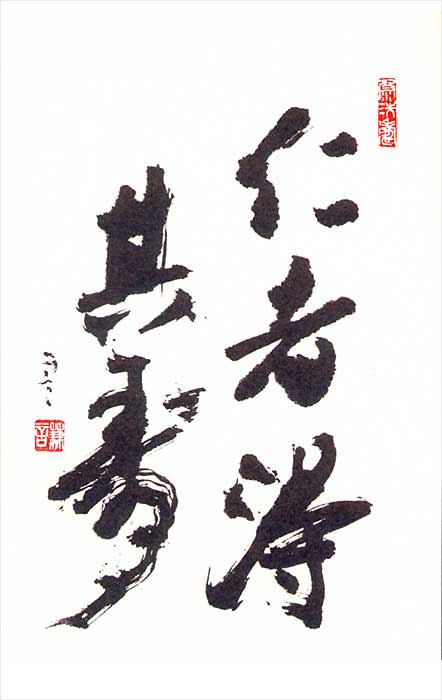 仁者得
其壽